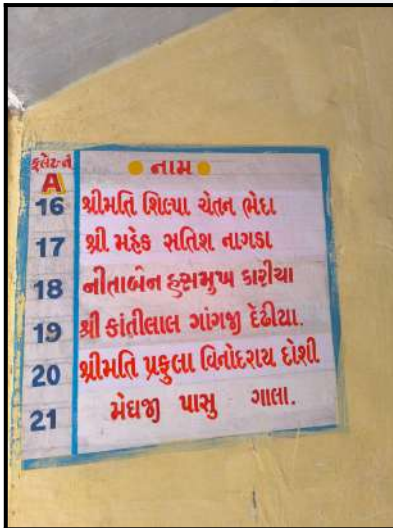 ફ્લેટનં નામ
A
16 શ્રીમતિ શિલ્પા ચેતન ભેદા
17 શ્રી મહેક સતિશ નાગડા
18 નીતાબેન હસમુખ કારીયા
19 શ્રી કાંતીલાલ ગાંગજી દેઢીયા.
20 શ્રીમતિ પ્રફુલા વિનોદરાય દોશી
21 મેઘજી પાસુ ગાલા.